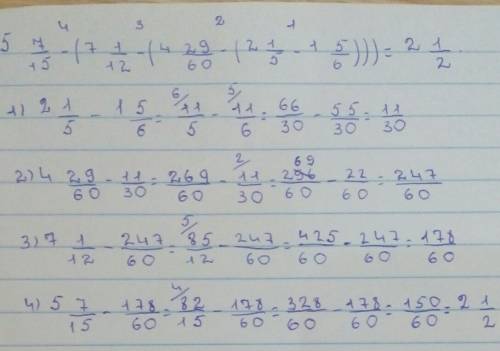 4 3 2 1
5 7/15 - (7 1/12 - (4 29/60 - (2 1/5 - 1 5/6))) = 2 1/2
1) 2 1/5 - 1 5/6 = 6/ 11/5 - 5/ 11/6 = 66/30 - 55/30 = 11/30
2) 4 29/60 - 11/30 = 269/60 - 2/ 11/30 = 269/60 - 22/60 = 247/60
3) 7 1/12 - 247/60 = 5/ 85/12 - 247/60 = 425/60 - 247/60 = 178/60
4) 5 7/15 - 178/60 = 4/ 82/15 - 178/60 = 328/60 - 178/60 = 150/60 = 2 1/2